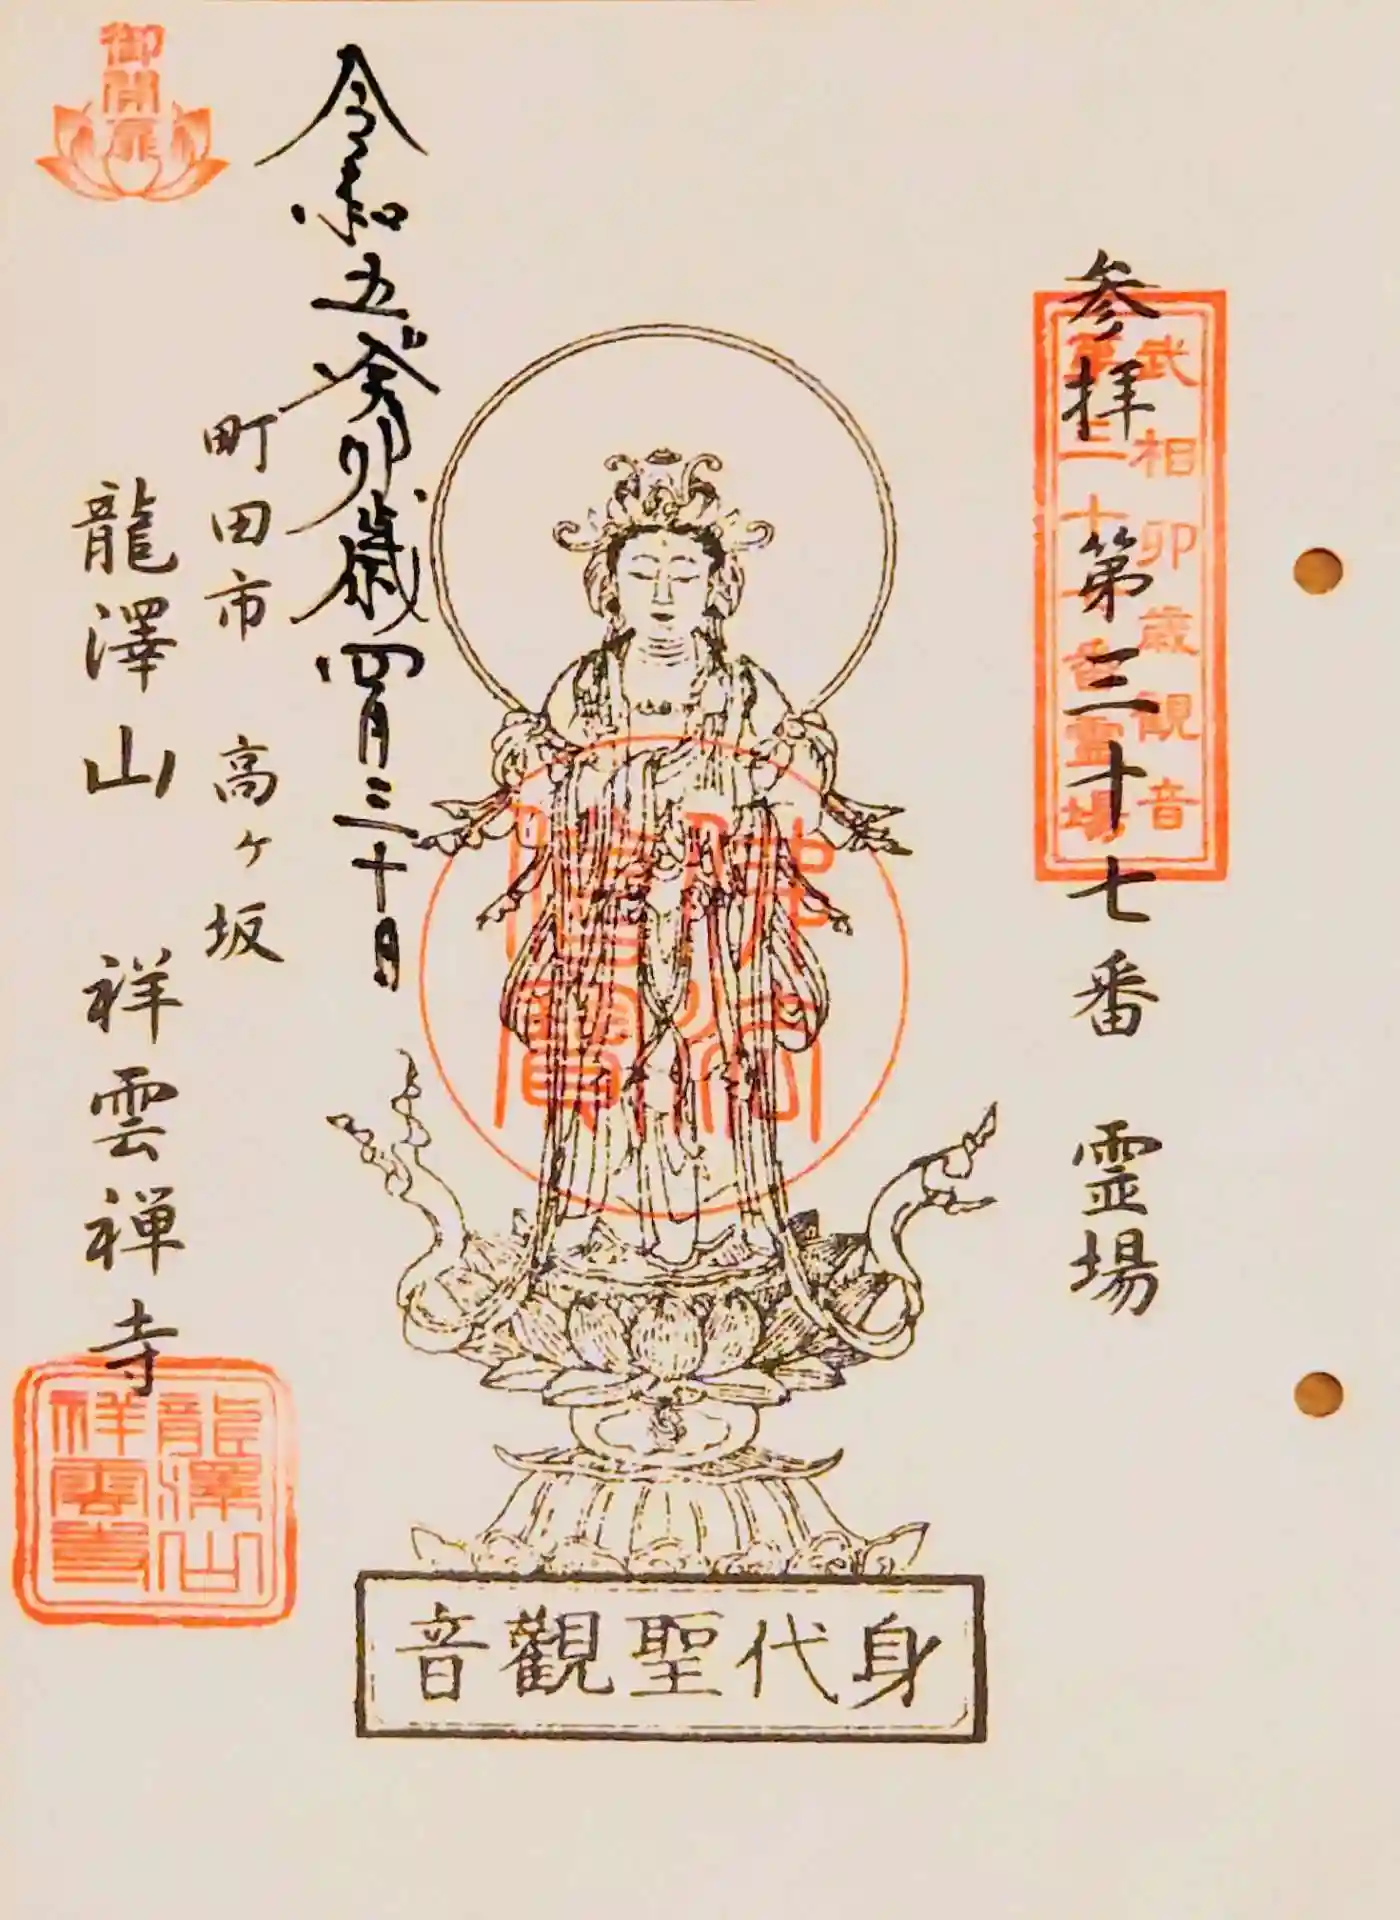 参拝 第三十七番 霊場
武相卯歳観音
第三十七番霊場
令和五癸卯歳四月三十日
町田市 高ヶ坂
龍澤山 祥雲禅寺
御開扉
佛法僧寶
龍澤山
祥雲寺
身代聖觀音